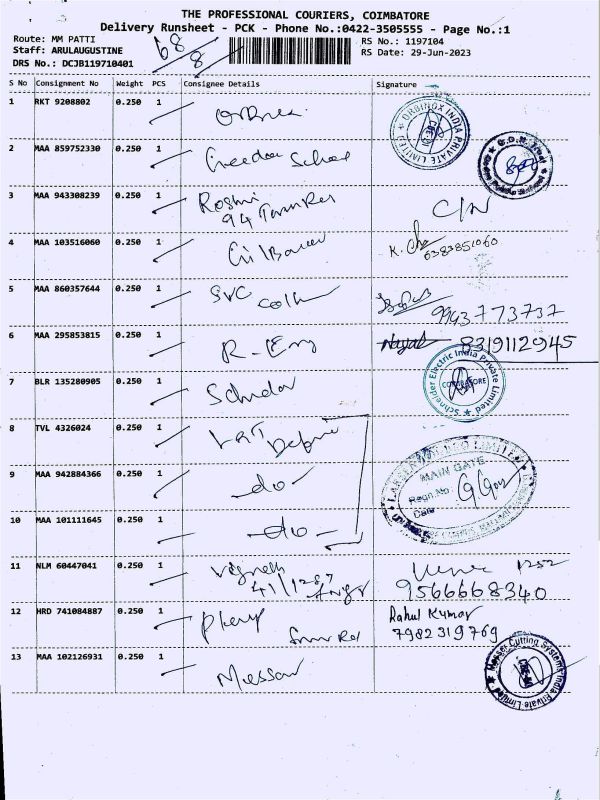 THE PROFESSIONAL COURIERS, COIMBATORE
Delivery Runsheet - PCK - Phone No.:0422-3505555 - Page No.:1
Route: MM PATTI
Staff: ARULAUGUSTINE
DRS No.: DCJB119710401
68
8
RS No.: 1197104
RS Date: 29-Jun-2023
S No Consignment No Weight PCS Consignee Details Signature
1 RKT 9208802 0.250 1
ORBINOX INDIA PRIVATE LIMITED
2 MAA 859752330 0.250 1
3 MAA 943308239 0.250 1 Roshni
94
4 MAA 103516060 0.250 1
K.
6383851060
5 MAA 860357644 0.250 1 SVC
9943773737
6 MAA 295853815 0.250 1 R-Eng
8319112945
7 BLR 135280905 0.250 1
Schneider Electric India Private Limited
COIMBATORE
8 TVL 4326024 0.250 1
9 MAA 942884366 0.250 1 -do-
MAIN GATE
Regn.No.
Date
10 MAA 101111645 0.250 1 -do-
11 NLM 60447041 0.250 1 Vignesh
1252
9566668340
12 HRD 741084887 0.250 1
Rahul Kumar
7982319769
13 MAA 102126931 0.250 1
Messer Cutting Systems India Private Limited